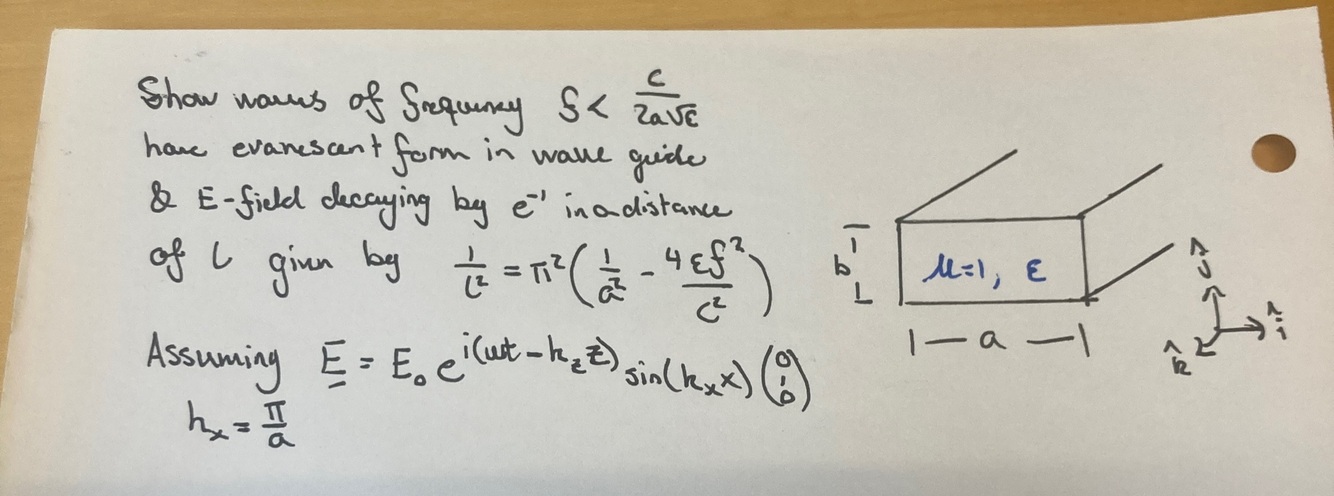 Show waves of frequency f < c/(2a√ε)
have evanescent form in wave guide
& E-field decaying by e⁻¹ in a distance
of L given by 1/L² = π²(1/a² - 4εf²/c²)
Assuming E = E₀ e^{i(ωt - k_z z)} sin(kₓx) (0 1 0)
kₓ = π/a
b
μ=1, ε
|— a —|
ĵ
î
k̂